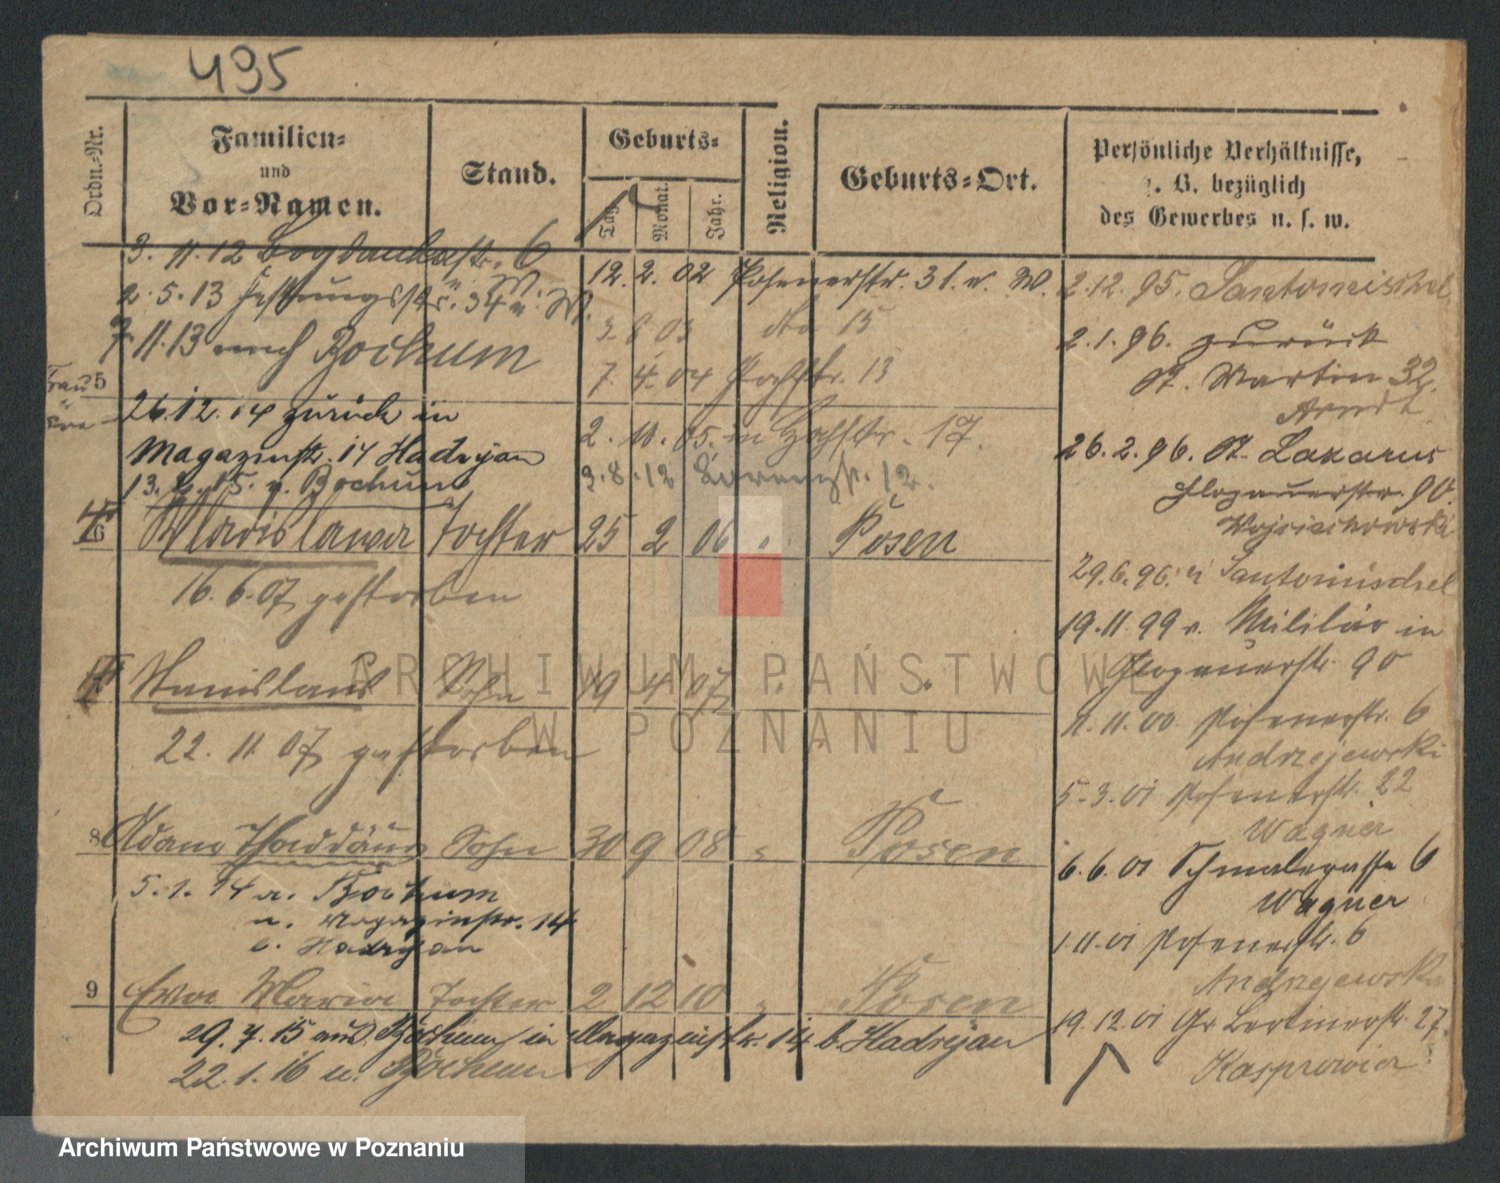 495
Ordn.-Nr.
Familien-
und
Vor-Namen.
Stand.
Geburts-
Tag.
Monat.
Jahr.
Religion.
Geburts-Ort.
Persönliche Verhältnisse,
z. B. bezüglich
des Gewerbes u. s. w.
3. 11. 12 Bogdankastr. 6
2. 5. 13 Festungsstr. 34 v. W.
7. 11. 13 nach Bochum
5
26. 12. 14 zurück in
Magazinstr. 14 Hadryan
13. 15. n. Bochum
12. 2. 02 Posenerstr. 31. v. W.
3. 03 dto 15
7. 4. 04 Hochstr. 13
2. 11. 05. in Hochstr. 17.
3. 8. 12 12.
6 Wladislawa Tochter 25 2 06 " Posen
16. 6. 07 gestorben
7 Stanislaus Sohn 19 4 07 " "
22. 11 07 gestorben
8 Adam Thaddäus Sohn 30 9 08 " Posen
5. 1. 14 a. Bochum
n. Magazinstr. 14
b. Hadryan
9 Eva Maria Tochter 2 12 10 " Posen
29. 7. 15 aus Bochum in Magazinstr. 14 b. Hadryan
22. 1. 16 n. Bochum
2. 12. 95. Santomischel
2. 1. 96. zurück
St. Martin 32.
Arndt
26. 2. 96. St. Lazarus
Glogauerstr. 90.
Wojciechowski
29. 6. 96. n Santomischel
19. 11. 99 v. Militär in
Glogauerstr. 90
1. 11. 00. Posenerstr. 6
Andrzejewski
5. 3. 01 Posenerstr. 22
Wagner
6. 6. 01 Schmalegasse 6
Wagner
1. 11. 01 Posenerstr. 6
Andrzejewski
19. 12. 01 Gr Berlinerstr. 27.
Kasprowicz
ARCHIWUM PAŃSTWOWE
W POZNANIU
Archiwum Państwowe w Poznaniu